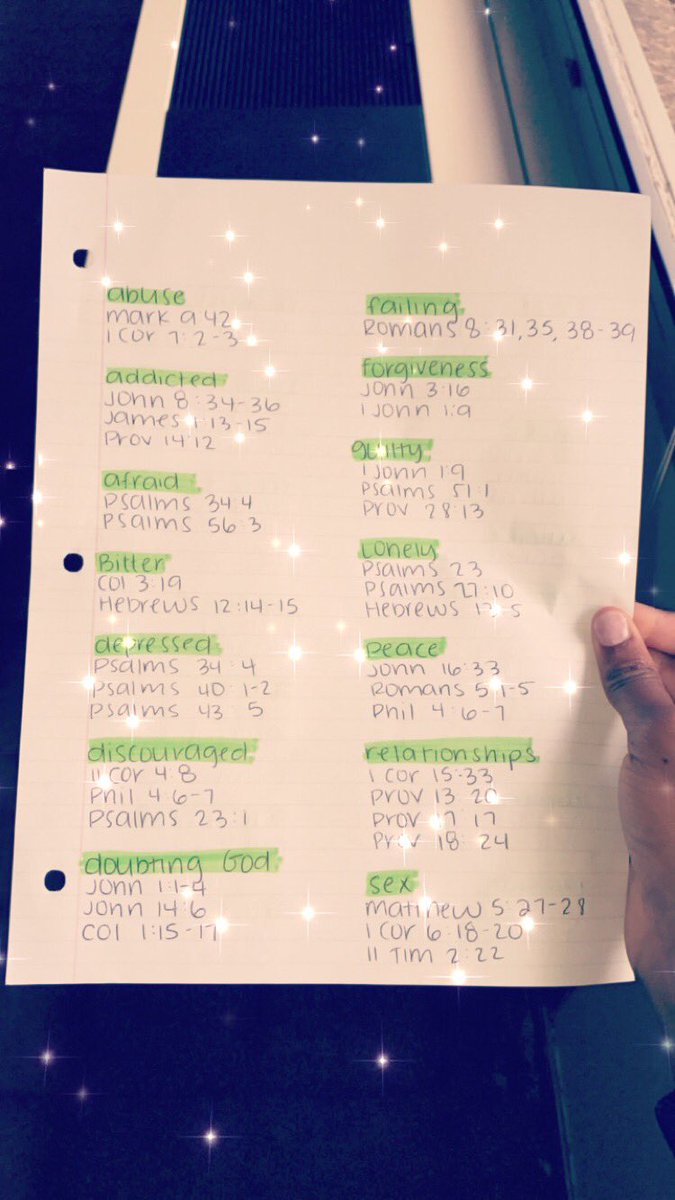 abuse
mark 9 42
1 cor 7:2-3
addicted
John 8:34-36
James 1:13-15
Prov 14:12
afraid
Psalms 34:4
Psalms 56:3
Bitter
Col 3:19
Hebrews 12:14-15
depressed
Psalms 34:4
Psalms 40:1-2
Psalms 43:5
discouraged
II Cor 4:8
Phil 4:6-7
Psalms 23:1
doubting God
John 1:1-4
John 14:6
Col 1:15-17
failing
Romans 8:31,35, 38-39
forgiveness
John 3:16
1 John 1:9
guilty
1 John 1:9
Psalms 51:1
Prov 28:13
Lonely
Psalms 23
Psalms 27:10
Hebrews 13:5
peace
John 16:33
Romans 5:1-5
Phil 4:6-7
relationships
1 cor 15:33
Prov 13:20
Prov 17:17
Prov 18:24
sex
Matthew 5:27-28
1 cor 6:18-20
II Tim 2:22